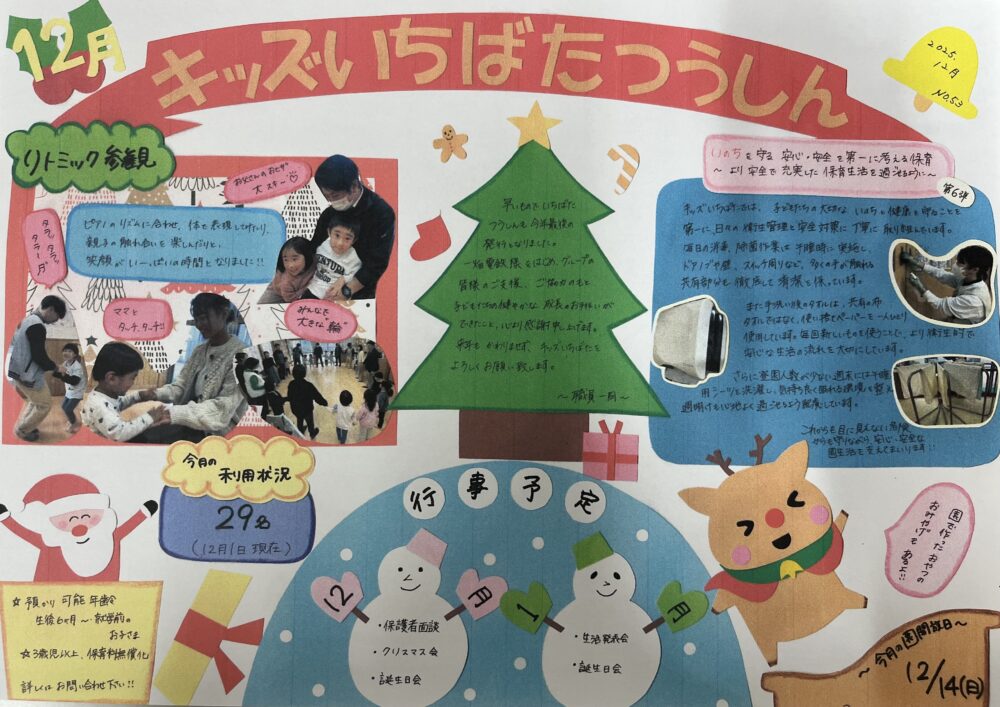 12月
キッズいちばたつうしん
2025.
12月
NO.53
リトミック参観
お父さんのおヒザ
大スキー♡
タララ、タラッ
タラーン♪
ピアノのリズムに合わせ、体で表現したり、
親子の触れ合いを楽しんだりと、
笑顔がいーっぱいの時間となりました!!
ママと
タッチ、タッチ!!
みんなで
"大きな輪"
早いもので、いちばた
つうしんも今年最後の
発行となりました。
一畑電鉄様をはじめ、グループの
皆様のご支援、ご協力のもと
子どもたちの健やかな成長のお手伝いが
できたこと、心より感謝申し上げます。
来年もかわりませず、キッズいちばたを
よろしくお願い致します。
〜職員一同〜
いのちを守る 安心・安全を第一に考える保育
〜より安全で充実した保育生活を過ごせるように〜
第6弾
キッズいちばたでは、子どもたちの大切ないのちと健康を守ることを
第一に、日々の衛生管理と安全対策に丁寧に取り組んでいます。
毎日の消毒、除菌作業は午睡時に実施し、
ドアノブや壁、スイッチ周りなど、多くの手が触れる
共有部分も徹底して清潔を保っています。
また手洗い後のタオルは、共有の布
タオルではなく、使い捨てペーパーを一人ひとり
使用しています。毎回新しいものを使うことで、より衛生的で
安心な生活の流れを大切にしています。
さらに登園人数が少ない週末には午睡
用シーツを洗濯し、気持ち良く眠れる環境を整え
週明けも心地よく過ごせるよう配慮しています。
これからも目に見えない危険
からも守りながら、安心・安全な
園生活を支えてまいります!!
今月の
利用状況
29名
(12月1日現在)
☆預かり可能年齢
生後6ヶ月〜就学前の
お子さま
☆3歳児以上、保育料無償化
詳しくはお問い合わせ下さい!!
行事予定
12月
・保護者面談
・クリスマス会
・誕生日会
1月
・生活発表会
・誕生日会
園で作ったおやつの
おみやげも
あるよ!!
〜今月の園開放日〜
12/14(日)